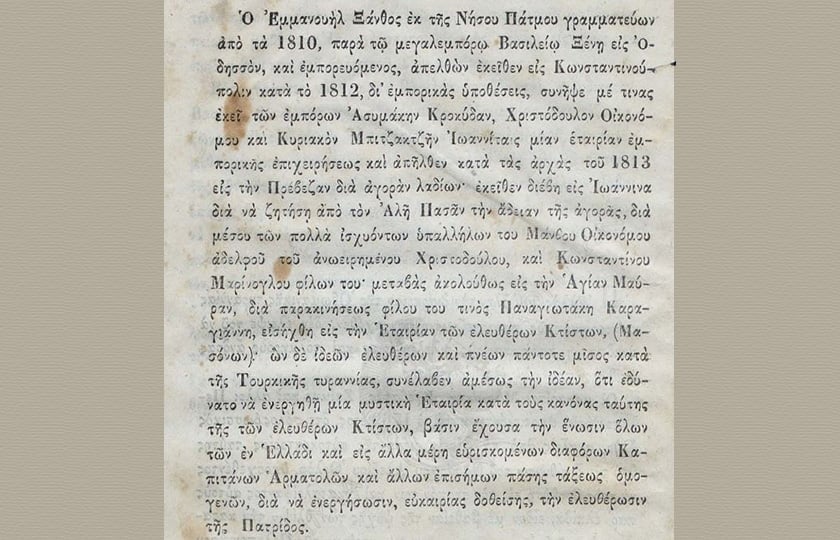 Ὁ Ἐμμανουὴλ Ξάνθος ἐκ τῆς Νήσου Πάτμου γραμματεύων
ἀπὸ τὰ 1810, παρὰ τῷ μεγαλεμπόρῳ Βασιλείῳ Ξένῃ εἰς Ὀ-
δησσὸν, καὶ ἐμπορευόμενος, ἀπελθὼν ἐκεῖθεν εἰς Κωνσταντινού-
πολιν κατὰ τὸ 1812, δι' ἐμπορικὰς ὑποθέσεις, συνῆψε μέ τινας
ἐκεῖ τῶν ἐμπόρων Ἀσυμάκην Κροκύδαν, Χριστόδουλον Οἰκονό-
μου καὶ Κυριακὸν Μπιτζακτζῆν Ἰωαννίταις μίαν ἑταιρίαν ἐμ-
πορικῆς ἐπιχειρήσεως καὶ ἀπῆλθεν κατὰ τὰς ἀρχὰς τοῦ 1813
εἰς τὴν Πρέβεζαν διὰ ἀγορὰν λαδίων· ἐκεῖθεν διέβη εἰς Ἰωάννινα
διὰ νὰ ζητήσῃ ἀπὸ τὸν Ἀλῆ Πασᾶν τὴν ἄδειαν τῆς ἀγορᾶς, διὰ
μέσου τῶν πολλὰ ἰσχυόντων ὑπαλλήλων του Μάνθου Οἰκονόμου
ἀδελφοῦ τοῦ ἀνωειρημένου Χριστοδούλου, καὶ Κωνσταντίνου
Μαρίνογλου φίλων του· μεταβὰς ἀκολούθως εἰς τὴν Ἁγίαν Μαύ-
ραν, διὰ παρακινήσεως φίλου του τινὸς Παναγιωτάκη Καρα-
γιάννη, εἰσήχθη εἰς τὴν Ἑταιρίαν τῶν ἐλευθέρων Κτίστων, (Μα-
σόνων)· ὢν δὲ ἰδεῶν ἐλευθέρων καὶ πνέων πάντοτε μῖσος κατὰ
τῆς Τουρκικῆς τυραννίας, συνέλαβεν ἀμέσως τὴν ἰδέαν, ὅτι ἐδύ-
νατο νὰ ἐνεργηθῇ μία μυστικὴ Ἑταιρία κατὰ τοὺς κανόνας ταύτης
τῆς τῶν ἐλευθέρων Κτίστων, βάσιν ἔχουσα τὴν ἕνωσιν ὅλων
τῶν ἐν Ἑλλάδι καὶ εἰς ἄλλα μέρη εὑρισκομένων διαφόρων Κα-
πιτάνων Ἀρματολῶν καὶ ἄλλων ἐπισήμων πάσης τάξεως ὁμο-
γενῶν, διὰ νὰ ἐνεργήσωσιν, εὐκαιρίας δοθείσης, τὴν ἐλευθέρωσιν
τῆς Πατρίδος.